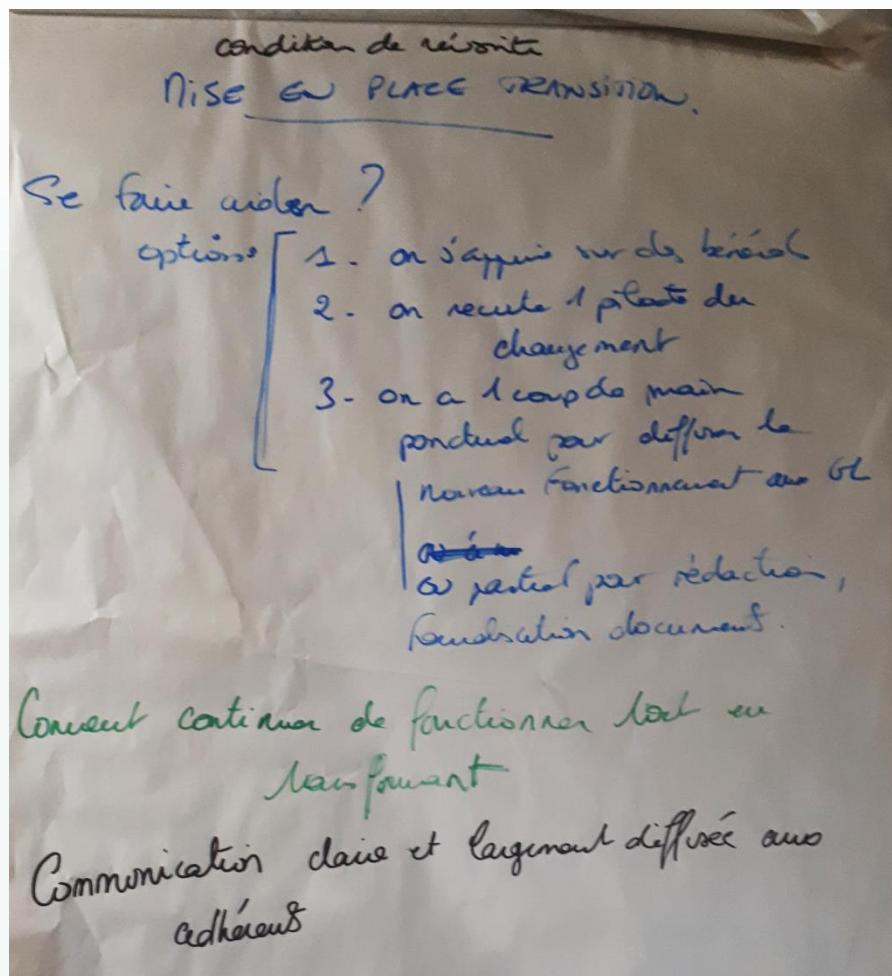 condition de réussite
MISE EN PLACE TRANSITION.
Se faire aider ?
options
1. on s'appuie sur des bénévol
2. on recrute 1 pilote du
changement
3- on a 1 coup de main
ponctuel pour diffuser le
nouveau fonctionnement aux GL
ou partiel pour rédaction,
formalisation document.
Comment continuer de fonctionner tout en
transformant
Communication claire et largement diffusée aux
adhérents